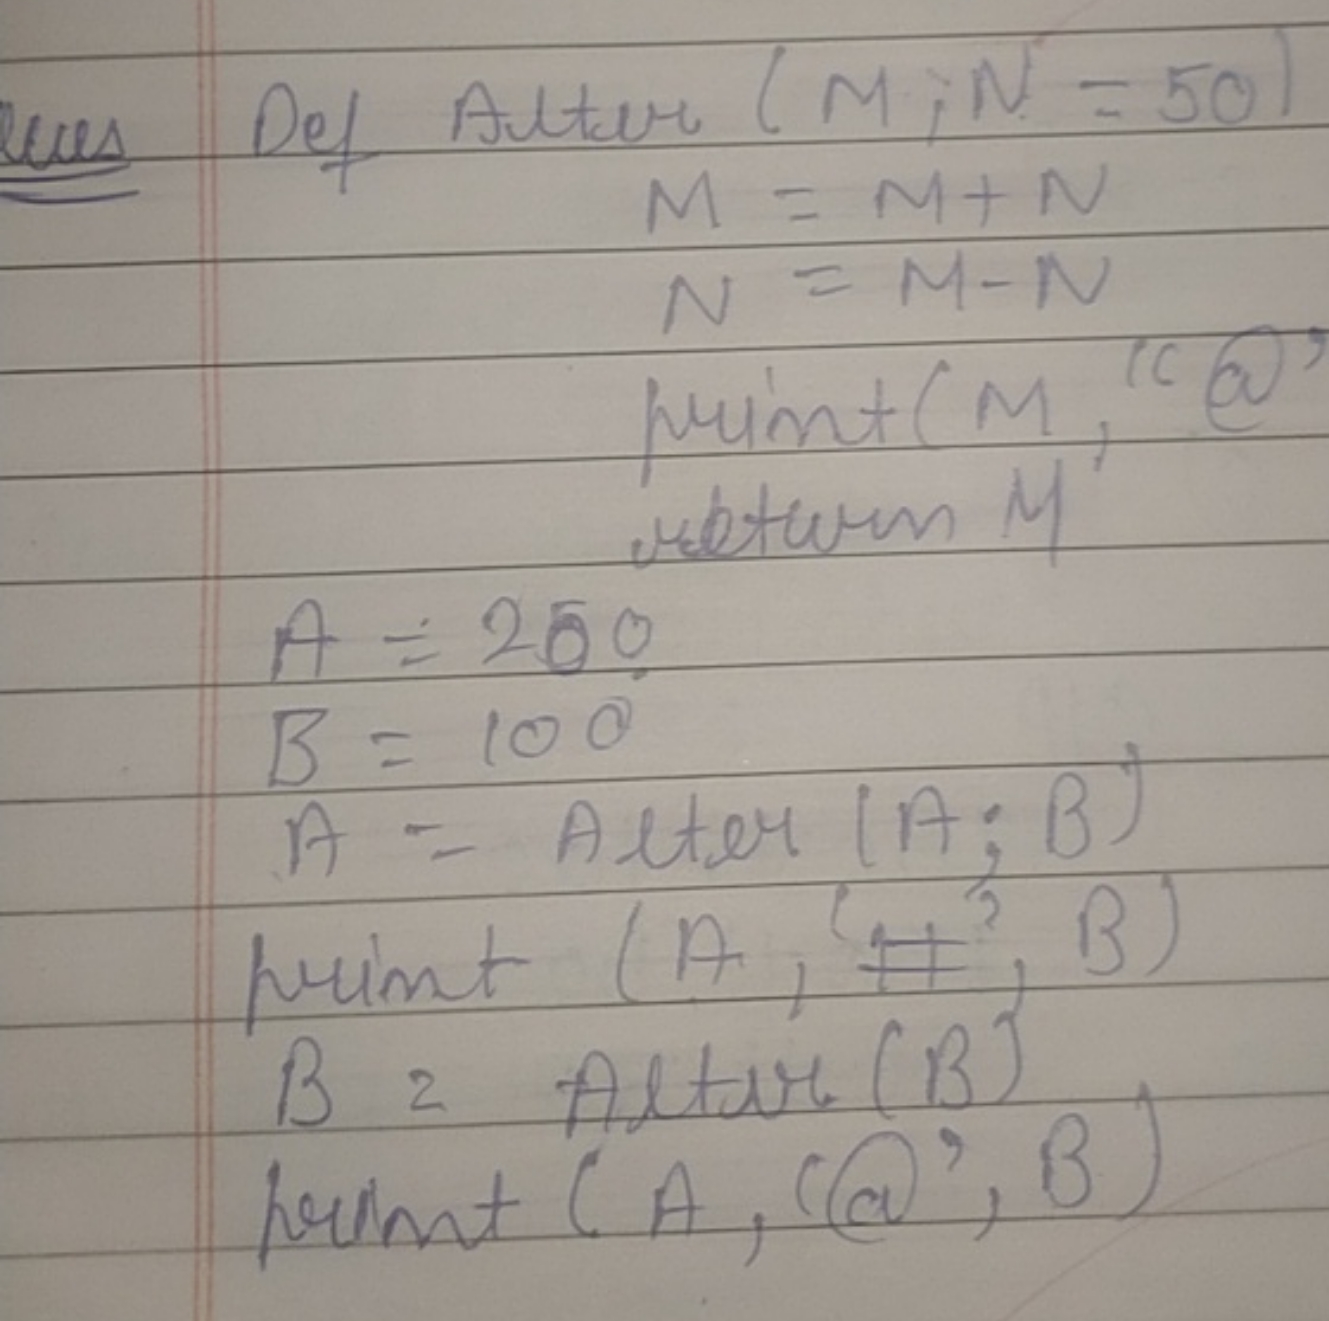 Ques Def Alter (M;N = 50)
M = M+N
N = M-N
print(M, "@"
return M
A = 250
B = 100
A = Alter (A; B)
print (A, '#', B)
B = Alter (B)
print (A, '@', B)